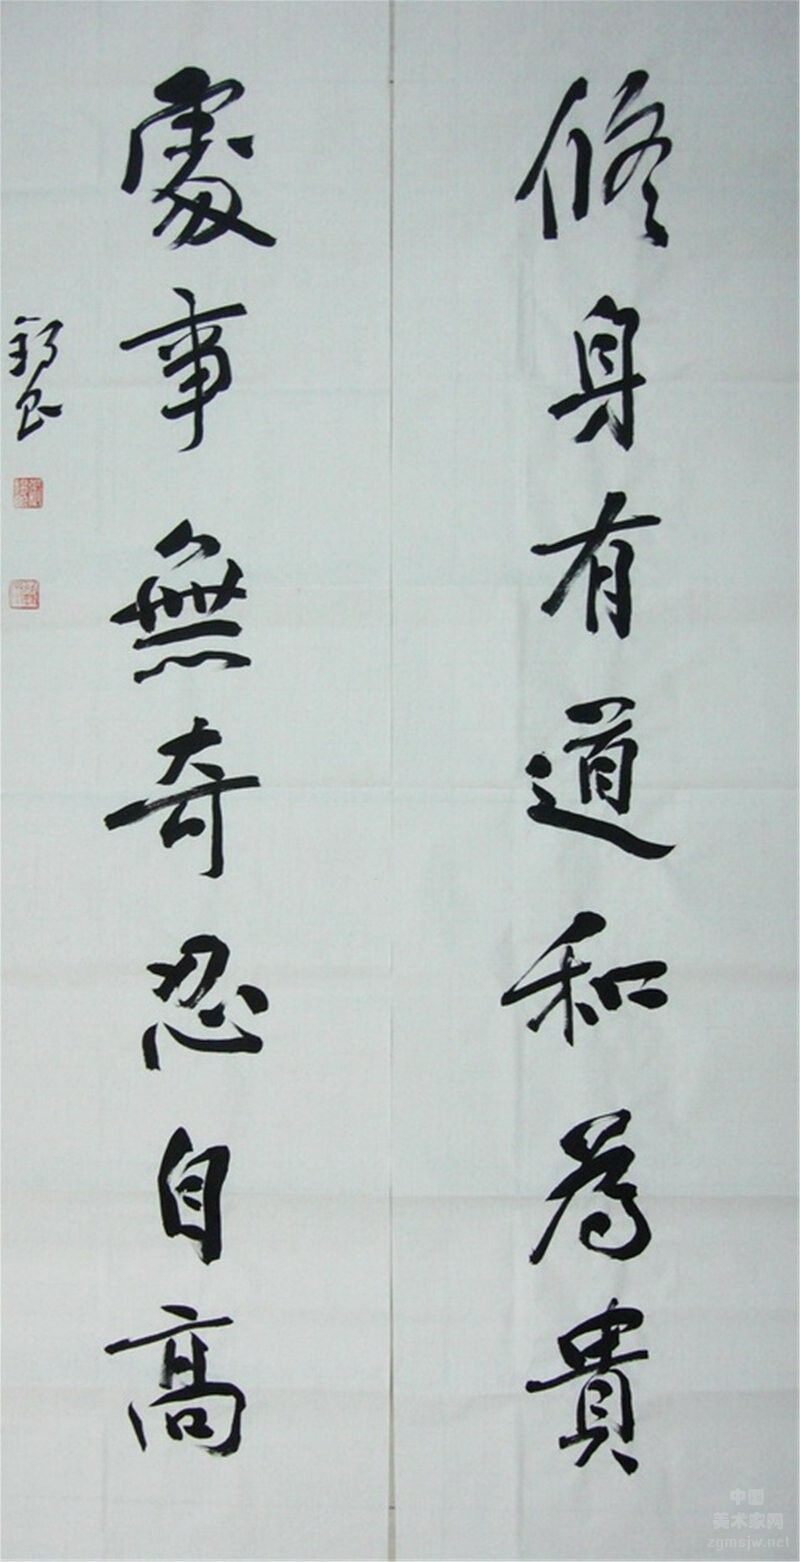 修身有道和為貴
處事無奇忍自高
中国
美术家网
zgmsjw.net